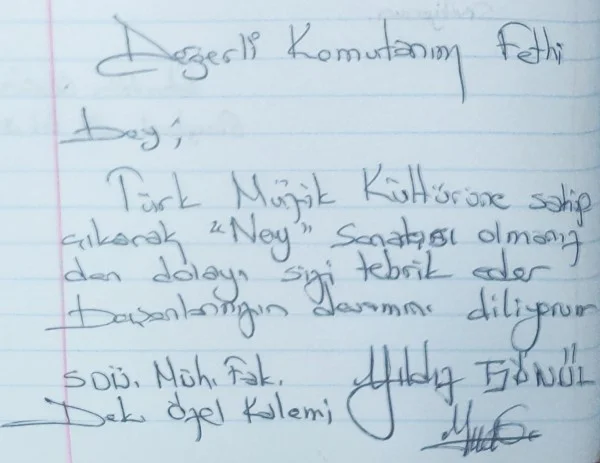 Değerli Komutanım Fethi
Bey;
Türk Müzik Kültürüne sahip
çıkarak "Ney" Sanatçısı olmanız
dan dolayı sizi tebrik eder
başarılarınızın devamını diliyorum
SDÜ. Müh. Fak. Yıldız GÖNÜL
Dek. Özel Kalemi